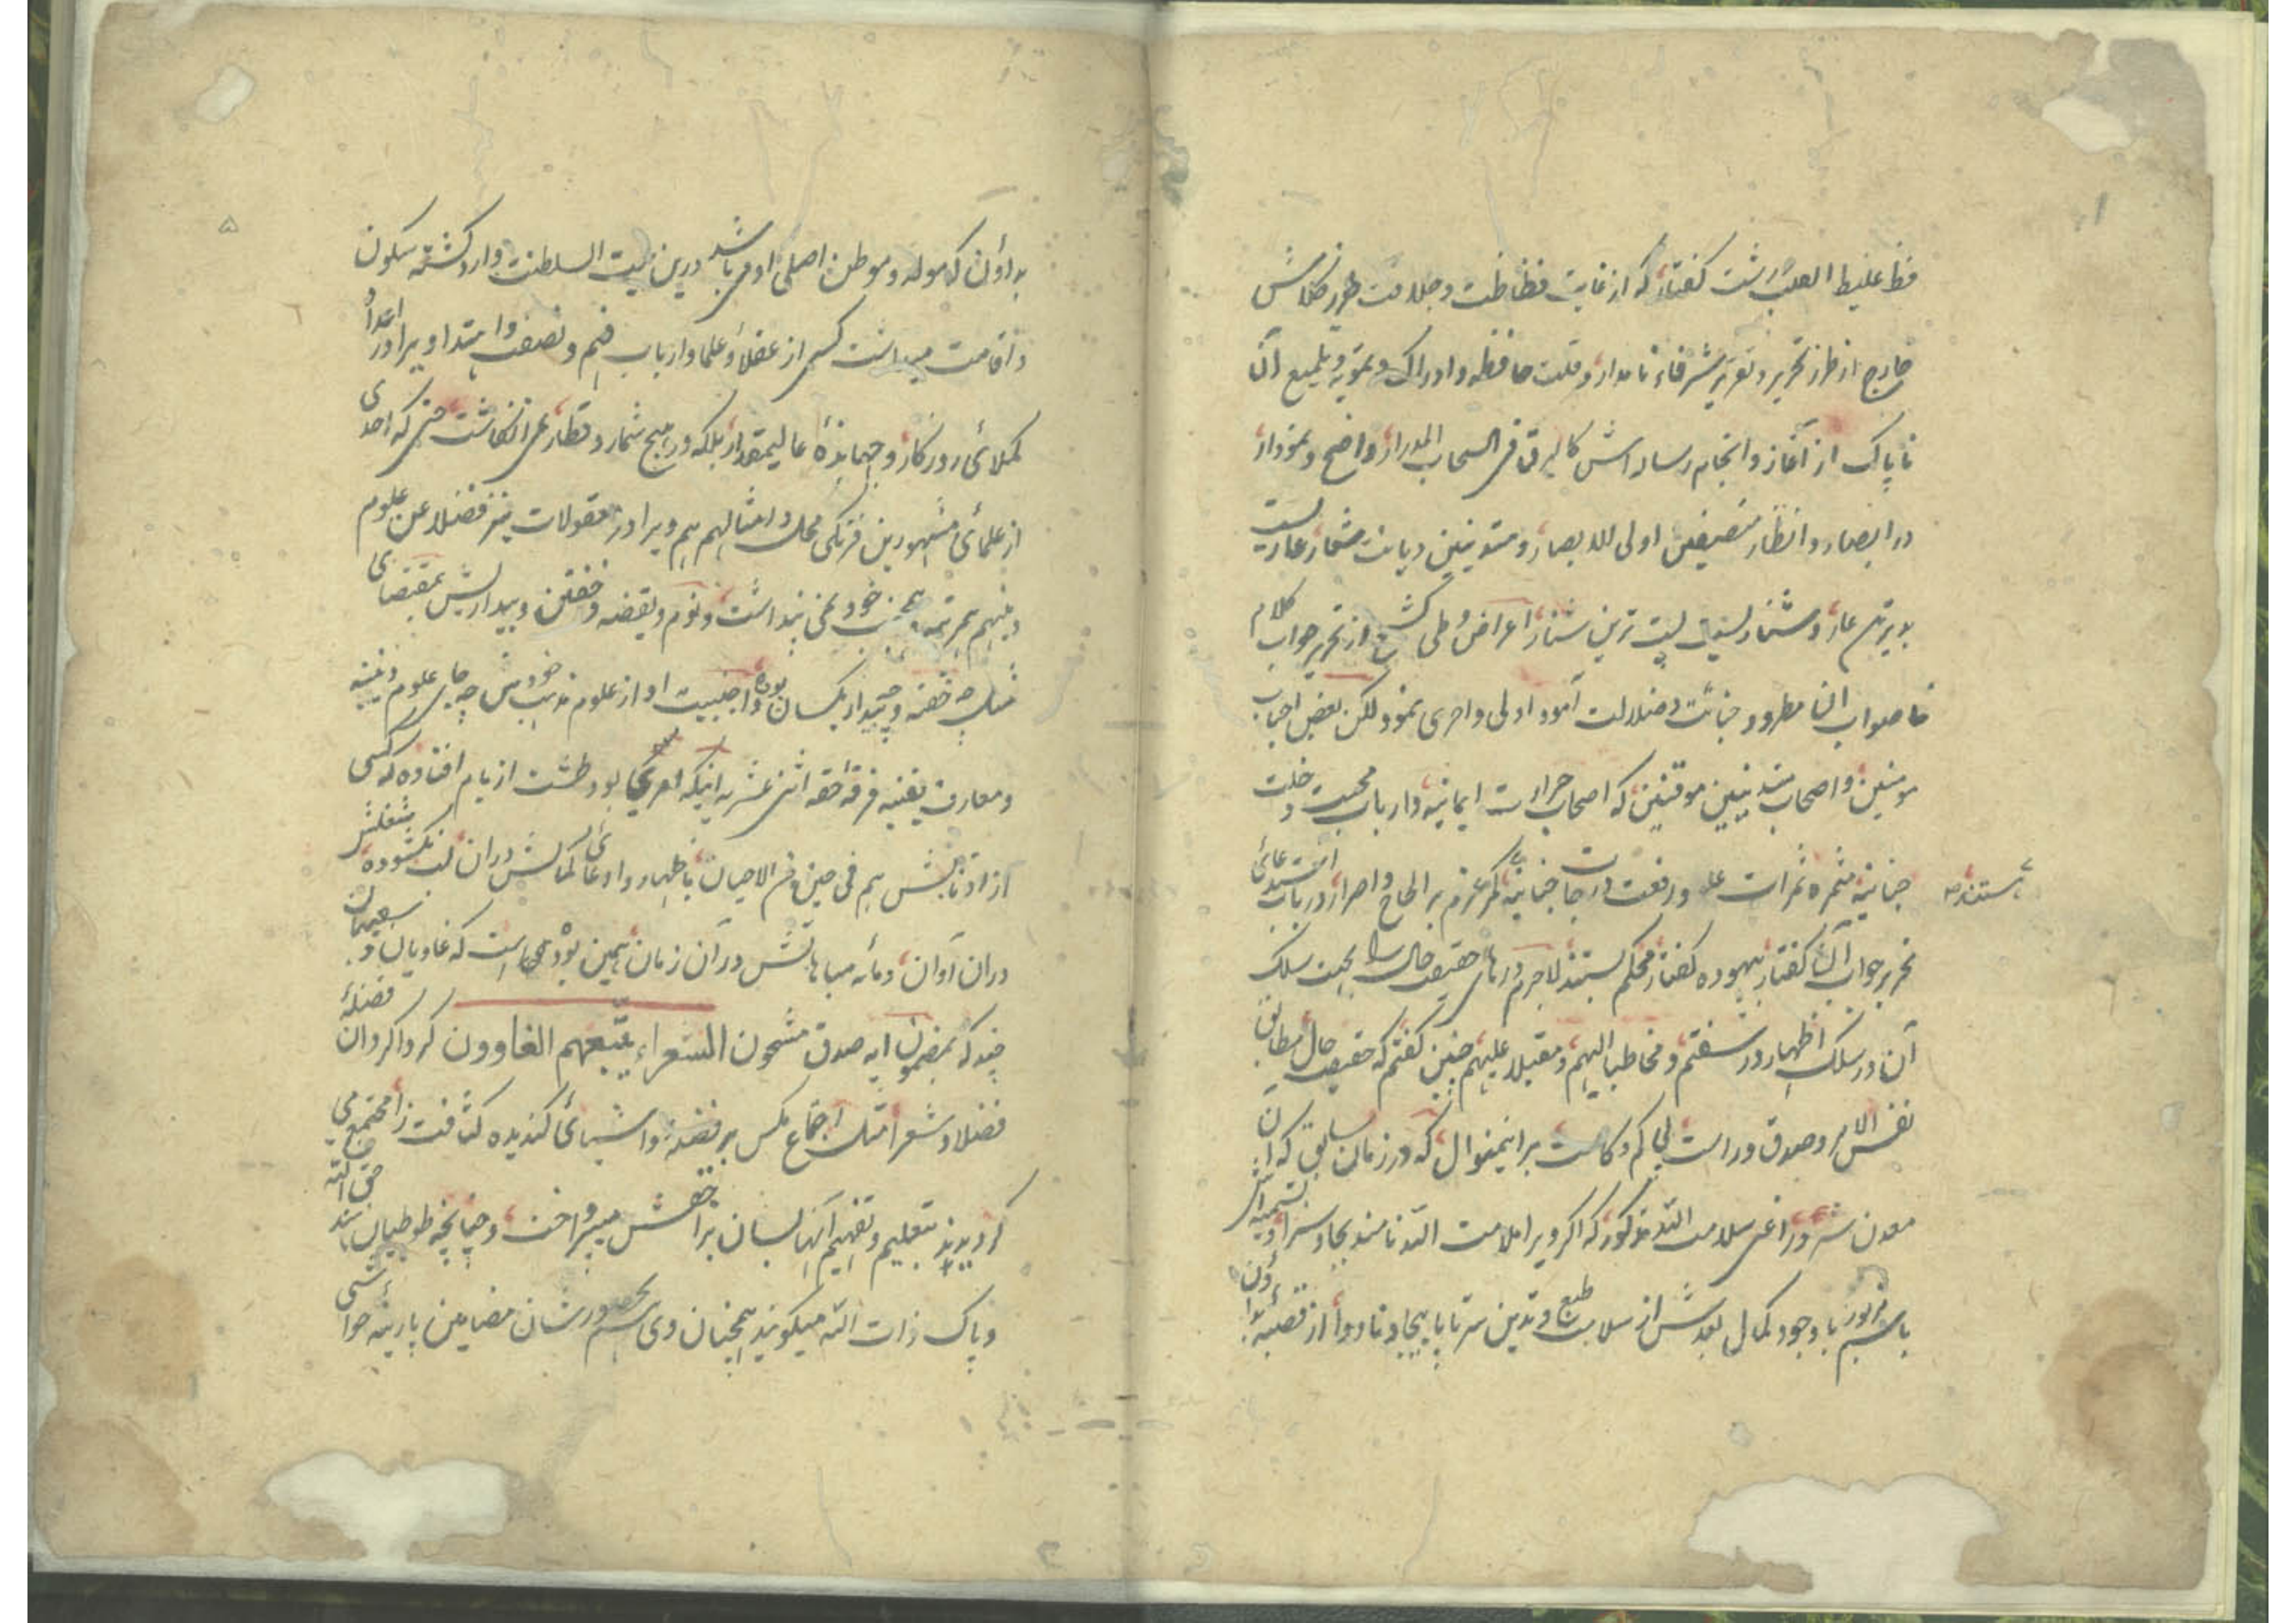 فظ غلیظ القلب زشت گفتار که از غایت فظاظت و جلافت طرز کلامش
خارج از طرز تحریر و تقریر شرفاء نامدار و قلت حافظه و ادراک و تمویه و تلمیع آن
ناپاک از آغاز و انجام رساله اش کالبرق فی السحاب المدرار واضح و نمودار
در ابصار و انظار منصفین اولی الابصار و متدینین دیانت شعار عاریست
بدترین عار و شناریست پست ترین شنار اعراض و طی کشح از تحریر جواب کلام
ناصواب آن مطرود خباثت و ضلالت آمود اولی و احری نمود لکن بعض احباب
مومنین و اصحاب متدینین موقنین که اصحاب حرارت ایمانیه و ارباب محبت و خلت
جنانیه مثمره ثمرات علو و رفعت درجات جنانیه کمر عزم بر الحاح و اصرار در باب استدعائی
هستند
تحریر جواب آن گفتار بیهوده گفتار محکم بستند لاجرم درهای حقیقت حال را بحیث سلک
آن در سلک اظهار در سفتم و مخاطبا الیهم و مقبلا علیهم چنین گفتم که حقیقت حال مطابق
نفس الامر و صدق و راست بی کم و کاست برینمنوال که در زمان سابق که آن
معدن شرور اعنی سلامت الله مذکور که اگر ویرا ملامت الله نامند بجا و سزا و تسمیه اش
باسم مزبور با وجود کمال بعدش از سلامت طبع و تدین سرتاپا بیجا و ناروا از قصبه
بداؤن که مولد و موطن اصلی او می باشد درین بیت السلطنت وارد گشته سکون
و اقامت میداشت کسی از عقلا و علما و ارباب فهم و نصفت و اهتدا ویرا در اعداد
کملائی روزگار و جهابذهٔ عالیمقدار بلکه در هیچ شمار و قطار نمی انگاشت حتی که احدی
از علمائی مشهورین فرنگی محل و امثالهم هم ویرا در معقولات نیز فضلا عن علوم
دینهم هم رتبه و همجنب خود نمی پنداشت و نوم و یقضه و خفتن و بیداریش بمقتضای
مثل چه خفته و چه بیدار یکسان بوده و اجنبیت او از علوم مذهب خودش چه جای علوم دینیه
و معارف یقینیه فرقه حقه اثنی عشریه اینکه بود طشت از بام افتاده که کسی
از اذنابش هم فی حین من الاحیان باظهار و ادعائی کمالش در آن لب نگشوده شغلش
دران آوان و مایه مباهاتش در آن زمان همین بوده است که غاویان و سفیهان
چند که بمضمون ایه صدق مشحون الشعراء یتبعهم الغاوون گرداگرد آن فضلهٔ
فضلا و شعرا مثل اجتماع مگس بر فضله و اشیائی گندیده کثافت زا مجتمع می
گردیدند بتعلیم و تفهیم آنها لسان برا میپرداخت و چنانچه طوطیان هند حق الله
و پاک ذات الله میگویند همچنان وی هم بحضور شان مضامین پارینه